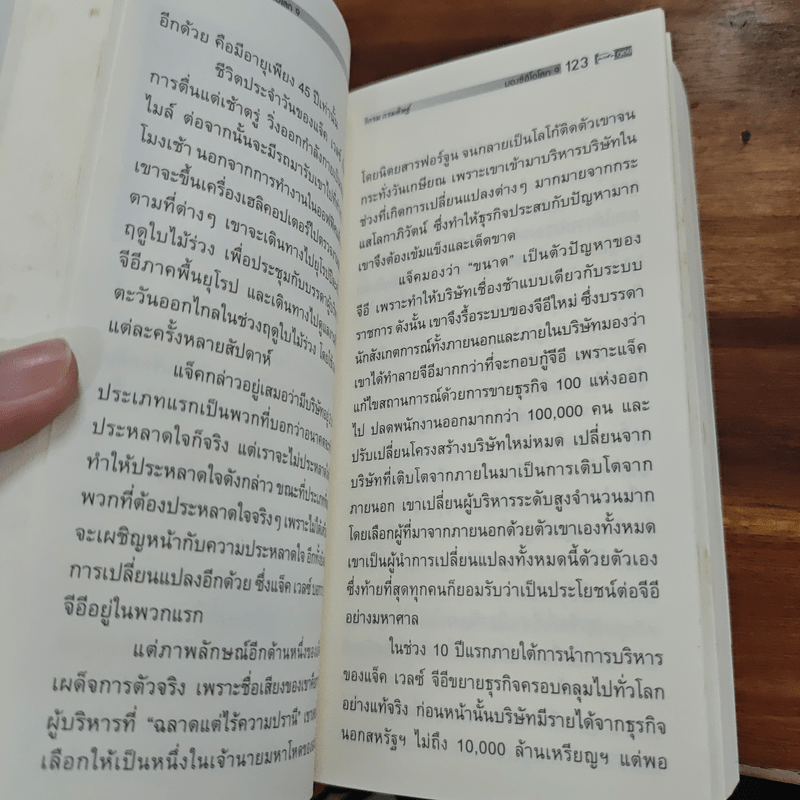 อีกด้วย คือมีอายุเพียง 45 ปีเท่านั้น
ชีวิตประจำวันของแจ็ค เวลซ์
การตื่นแต่เช้าตรู่ วิ่งออกกำลังกาย
ไมล์ ต่อจากนั้นจะมีรถมารับเขาไป
โมงเช้า นอกจากการทำงานในออฟฟิศ
เขาจะขึ้นเครื่องเฮลิคอปเตอร์ไปตรวจ
ตามที่ต่างๆ เขาจะเดินทางไปยุโรป
ฤดูใบไม้ร่วง เพื่อประชุมกับบรรดา
จีอีภาคพื้นยุโรป และเดินทางไปดู
ตะวันออกไกลในช่วงฤดูใบไม้ร่วง โดย
แต่ละครั้งหลายสัปดาห์
แจ็คกล่าวอยู่เสมอว่ามีบริษัทอยู่
ประเภทแรกเป็นพวกที่บอกว่าอนาคต
ประหลาดใจก็จริง แต่เราจะไม่ประหลาด
ทำให้ประหลาดใจดังกล่าว ขณะที่ประเภท
พวกที่ต้องประหลาดใจจริงๆ เพราะไม่ได้
จะเผชิญหน้ากับความประหลาดใจ อีกทั้ง
การเปลี่ยนแปลงอีกด้วย ซึ่งแจ็ค เวลซ์ บอก
จีอีอยู่ในพวกแรก
แต่ภาพลักษณ์อีกด้านหนึ่งของ
เผด็จการตัวจริง เพราะชื่อเสียงของเขา
ผู้บริหารที่ “ฉลาดแต่ไร้ความปรานี”
เลือกให้เป็นหนึ่งในเจ้านายมหาโหดของ
วิกรม กรมดิษฐ์
มองซีอีโอโลก 9 123
โดยนิตยสารฟอร์จูน จนกลายเป็นโลโก้ติดตัวเขาจน
กระทั่งวันเกษียณ เพราะเขาเข้ามาบริหารบริษัทใน
ช่วงที่เกิดการเปลี่ยนแปลงต่างๆ มากมายจากกระ
แสโลกาภิวัตน์ ซึ่งทำให้ธุรกิจประสบกับปัญหามาก
เขาจึงต้องเข้มแข็งและเด็ดขาด
แจ็คมองว่า “ขนาด” เป็นตัวปัญหาของ
จีอี เพราะทำให้บริษัทเชื่องช้าแบบเดียวกับระบบ
ราชการ ดังนั้น เขาจึงรื้อระบบของจีอีใหม่ ซึ่งบรรดา
นักสังเกตการณ์ทั้งภายนอกและภายในบริษัทมองว่า
เขาได้ทำลายจีอีมากกว่าที่จะกอบกู้จีอี เพราะแจ็ค
แก้ไขสถานการณ์ด้วยการขายธุรกิจ 100 แห่งออก
ไป ปลดพนักงานออกมากกว่า 100,000 คน และ
ปรับเปลี่ยนโครงสร้างบริษัทใหม่หมด เปลี่ยนจาก
บริษัทที่เติบโตจากภายในมาเป็นการเติบโตจาก
ภายนอก เขาเปลี่ยนผู้บริหารระดับสูงจำนวนมาก
โดยเลือกผู้ที่มาจากภายนอกด้วยตัวเขาเองทั้งหมด
เขาเป็นผู้นำการเปลี่ยนแปลงทั้งหมดนี้ด้วยตัวเอง
ซึ่งท้ายที่สุดทุกคนก็ยอมรับว่าเป็นประโยชน์ต่อจีอี
อย่างมหาศาล
ในช่วง 10 ปีแรกภายใต้การนำการบริหาร
ของแจ็ค เวลซ์ จีอีขยายธุรกิจครอบคลุมไปทั่วโลก
อย่างแท้จริง ก่อนหน้านั้นบริษัทมีรายได้จากธุรกิจ
นอกสหรัฐฯ ไม่ถึง 10,000 ล้านเหรียญฯ แต่พอ